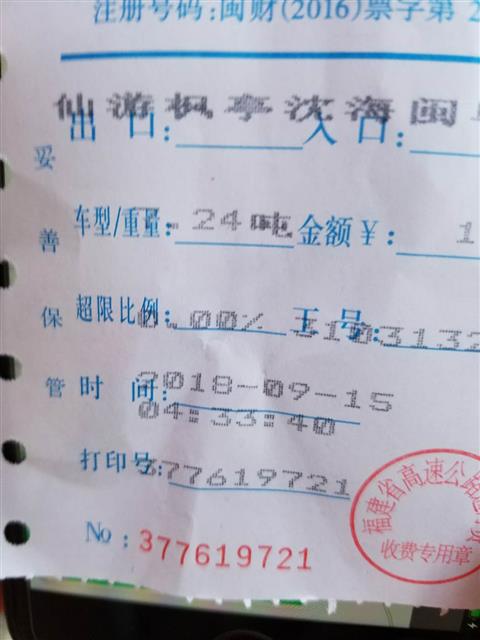 注册号码:闽财(2016)票字第 2
仙游枫亭沈海闽
出 口: 入 口:
车型/重量: .24吨 金额¥: 1
超限比例: 0.00% 工号: 3103132
时 间: 2018-09-15
04:33:40
打印号: 377619721
No:377619721
妥善保管
福建省高速公路
收费专用章